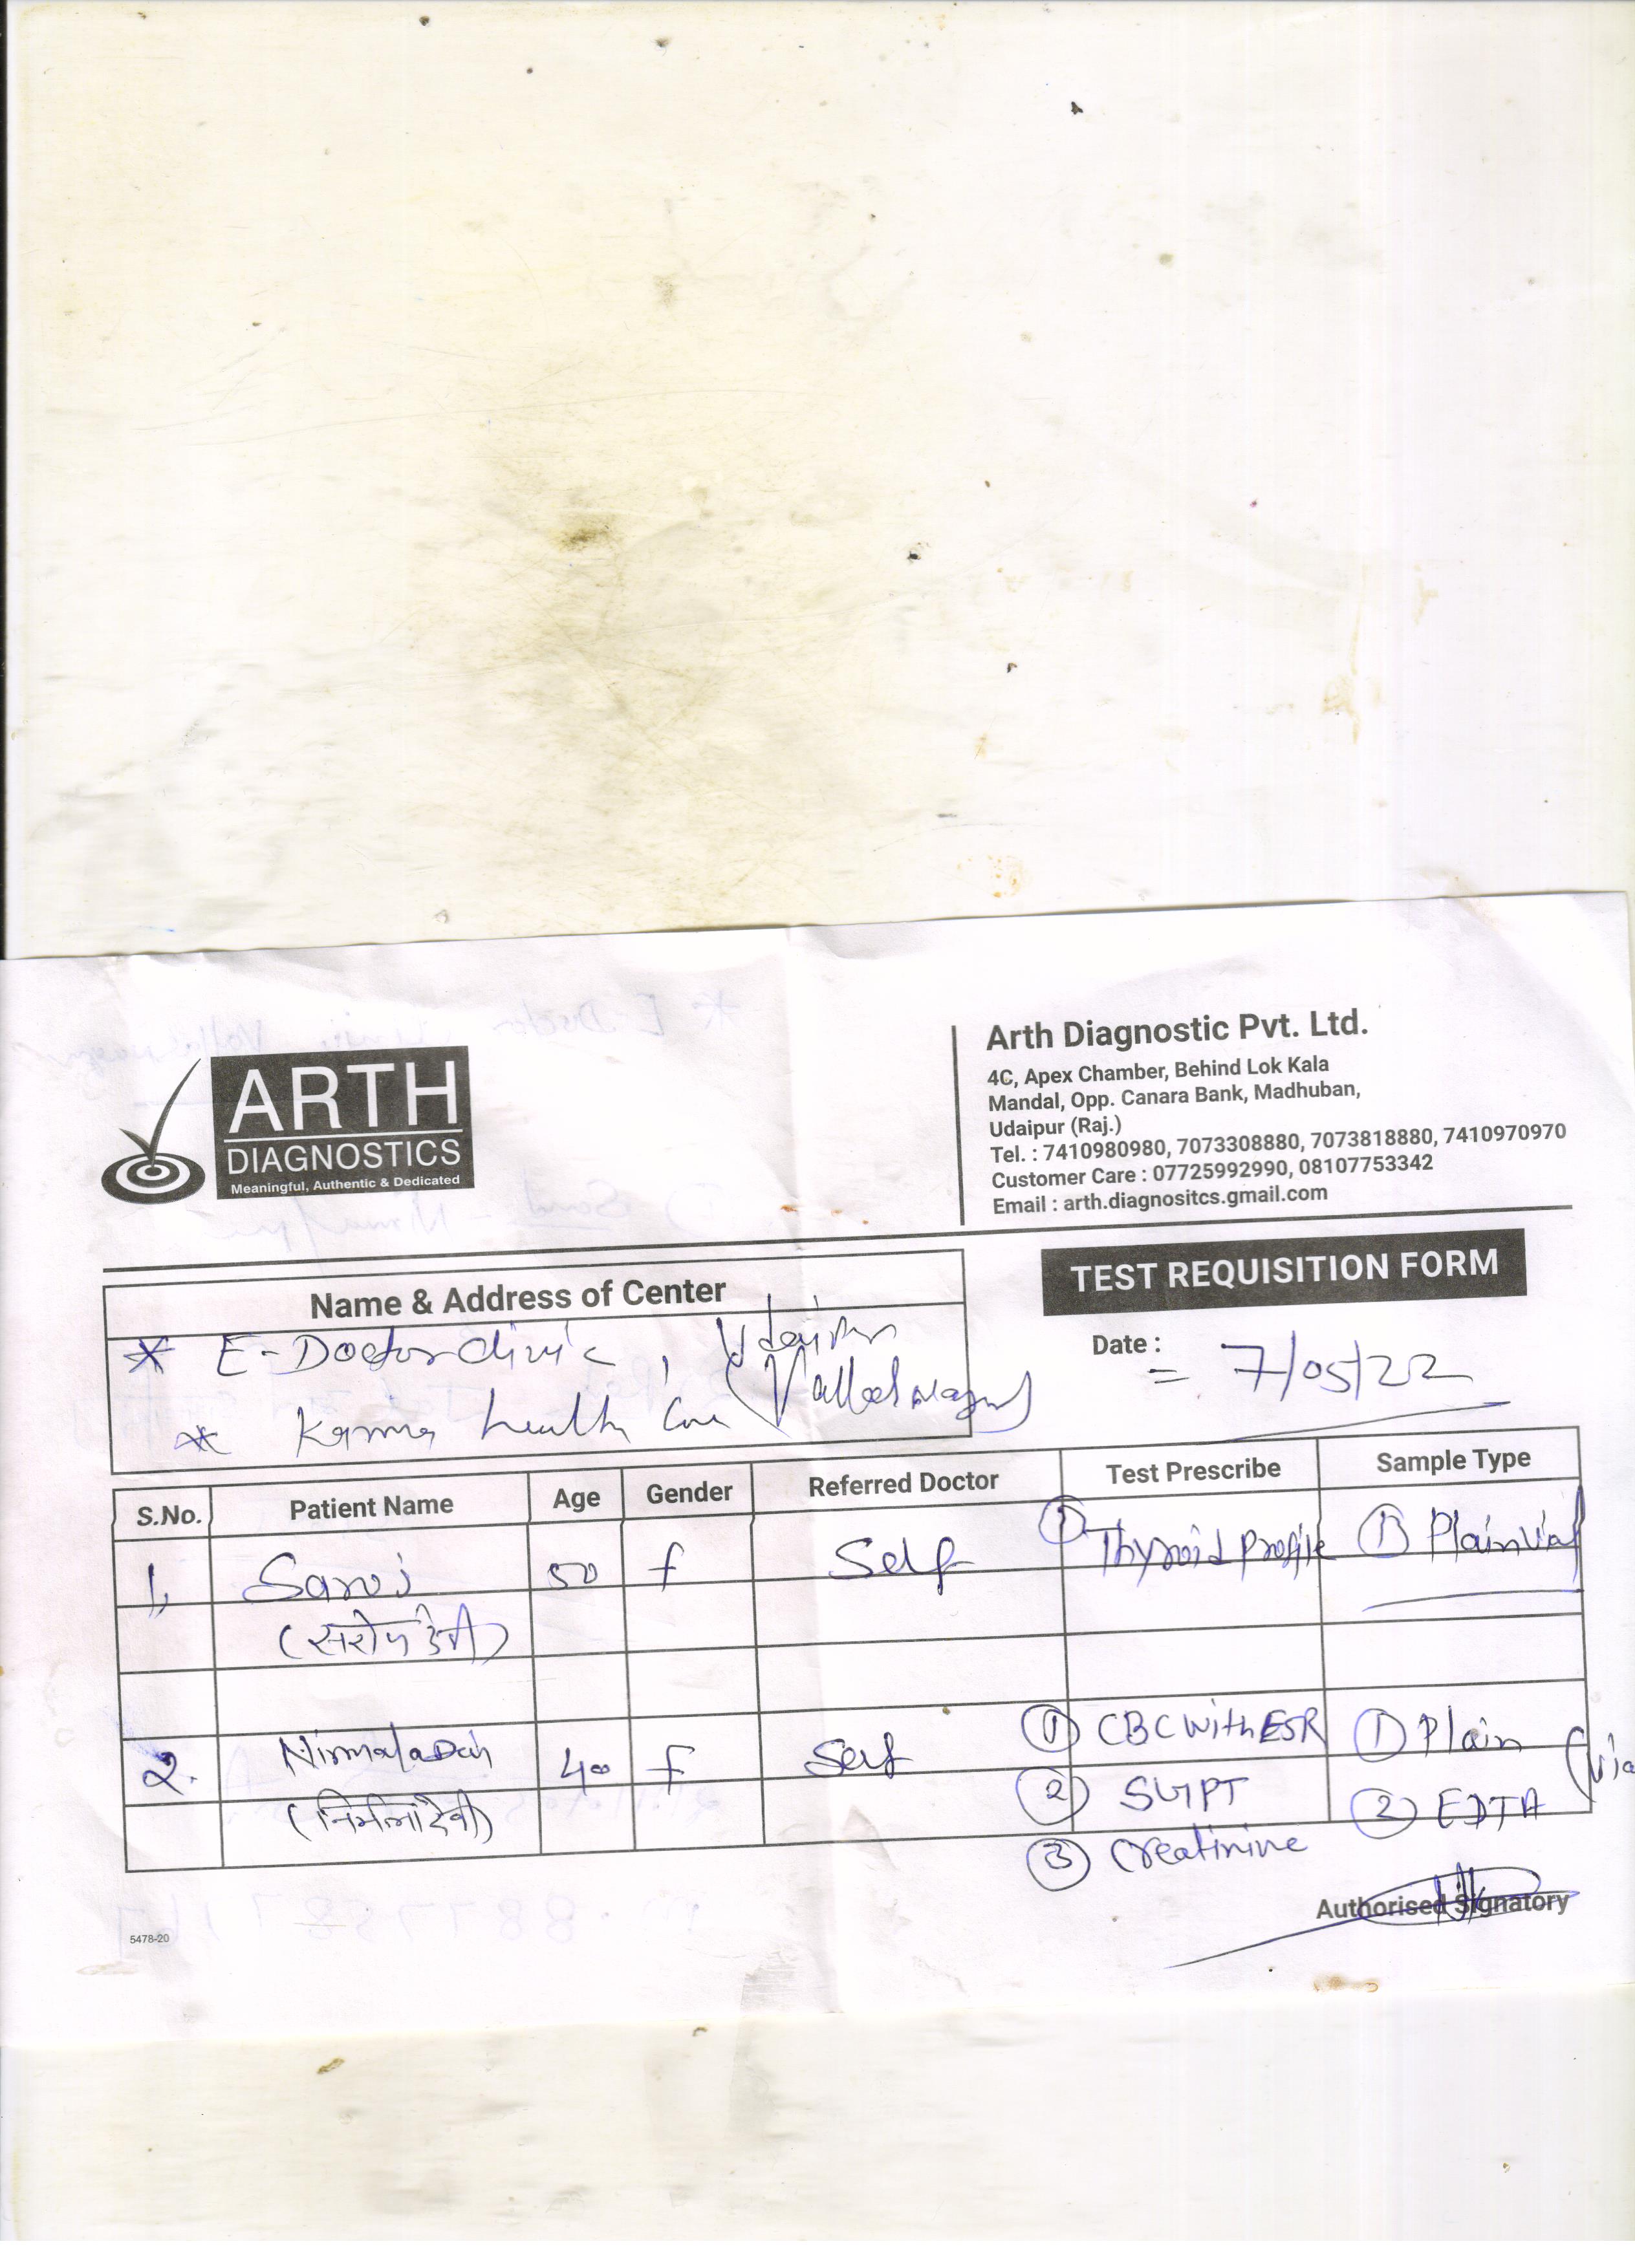 ARTH
DIAGNOSTICS
Meaningful, Authentic & Dedicated
Arth Diagnostic Pvt. Ltd.
4C, Apex Chamber, Behind Lok Kala
Mandal, Opp. Canara Bank, Madhuban,
Udaipur (Raj.)
Tel. : 7410980980, 7073308880, 7073818880, 7410970970
Customer Care : 07725992990, 08107753342
Email : arth.diagnositcs.gmail.com
TEST REQUISITION FORM
Name & Address of Center
* E-Doctor clinic, Udaipur
* Karma health Care (Vallabhnagar)
Date : = 7/05/22
S.No. Patient Name Age Gender Referred Doctor Test Prescribe Sample Type
1. Saroj 50 f Self ① Thyroid profile ① Plain vial
(सरोज देवी)
2. Nirmala 40 f Self ① CBC with ESR ① Plain
(निर्मला देवी) ② SGPT ② EDTA
③ Creatinine
Authorised Signatory
5478-20